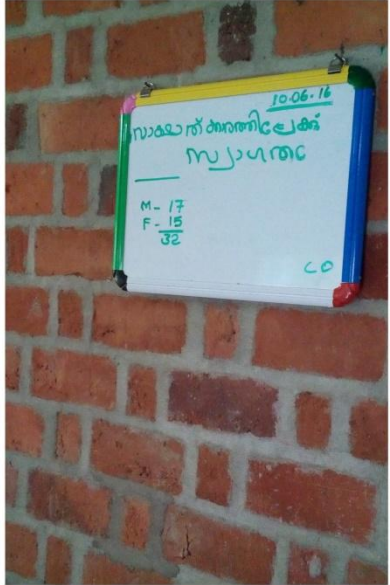 10.06.16
സാക്ഷാത്ക്കാരത്തിലേക്ക്
സ്വാഗതം
M - 17
F - 15
32
CO